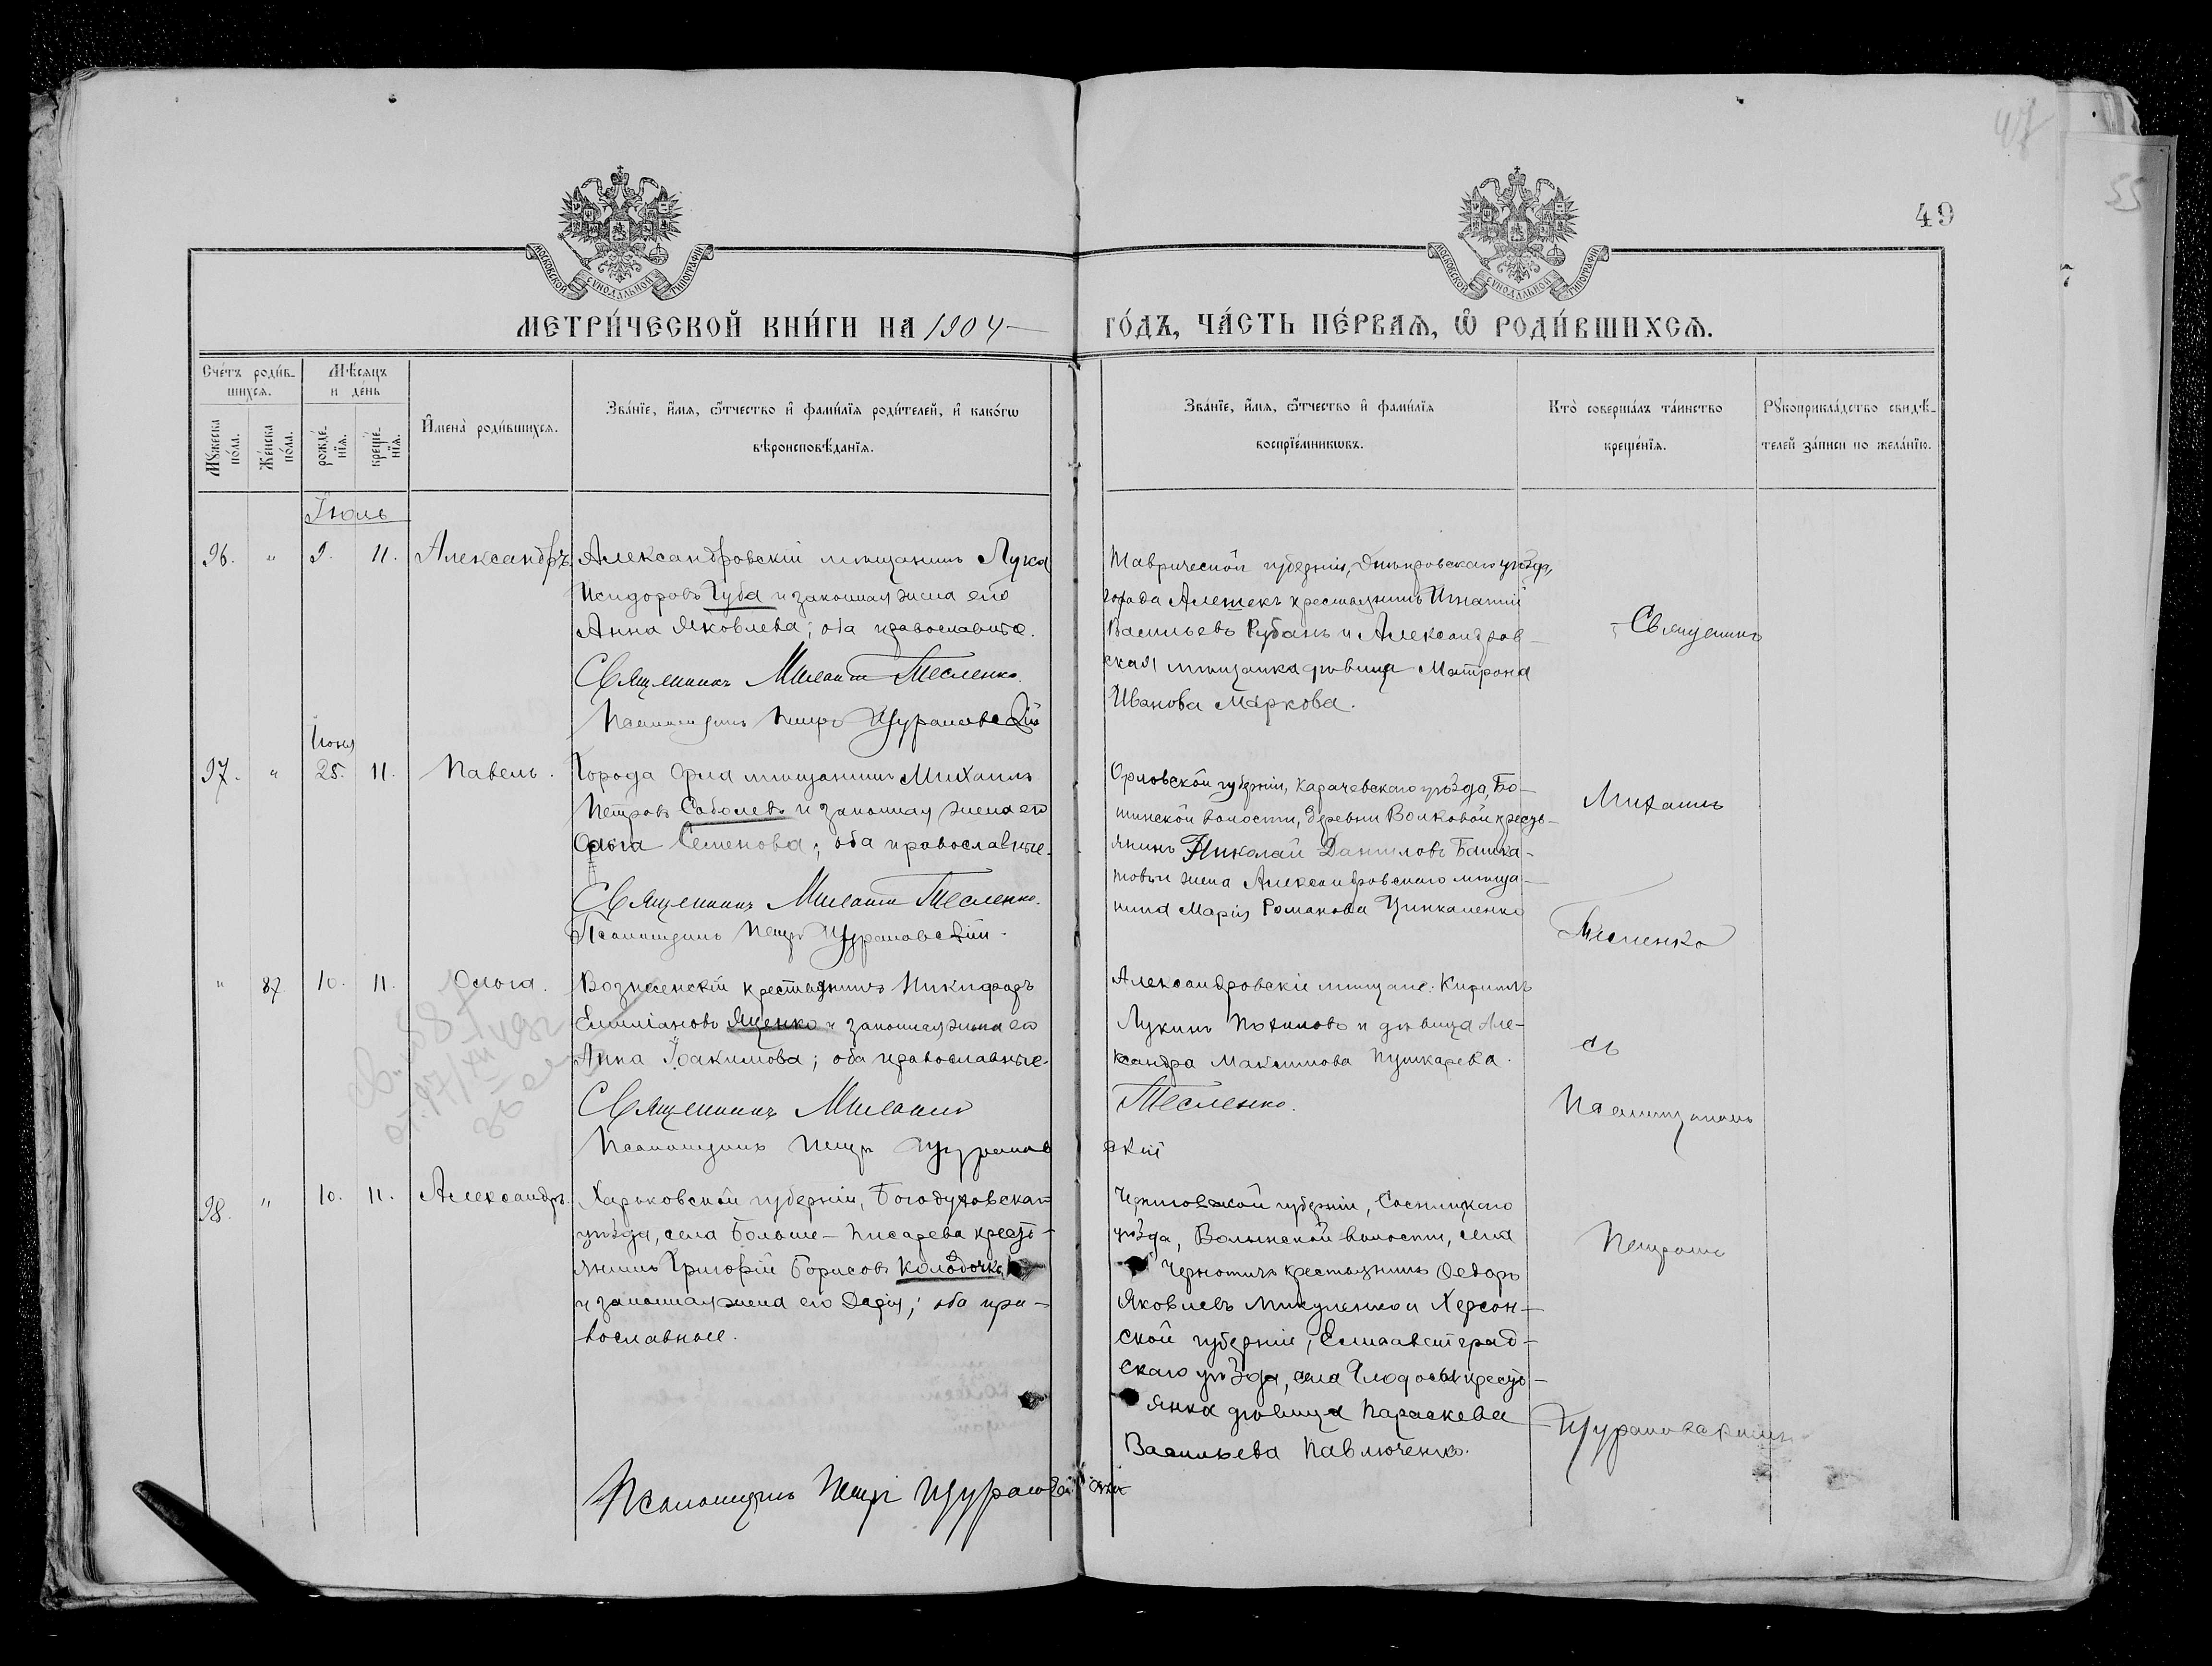 49
МОСКОВСКОЙ СѴНОДАЛЬНОЙ ТИПОГРАФІИ
МОСКОВСКОЙ СѴНОДАЛЬНОЙ ТИПОГРАФІИ
МЕТРИ́ЧЕСКОЙ КНИ́ГИ НА 1904 ГО́ДЪ, ЧА́СТЬ ПЕ́РВАѦ, Ѡ҆ РОДИ́ВШИХСѦ.
Сче́тъ роди́в-
шихсѧ.
Мꙋ́жеска по́ла.
Же́нска по́ла.
Мѣ́сѧцъ
и де́нь
рожде́-
нїѧ.
креще́-
нїѧ.
И҆мена̀ роди́вшихсѧ.
Зва́нїе, и҆́мѧ, ѻ҆́тчество и҆ фами́лїѧ роди́телей, и҆ како́гѡ
вѣроисповѣ́данїѧ.
Зва́нїе, и҆́мѧ, ѻ҆́тчество и҆ фами́лїѧ
воспрїе́мникѡвъ.
Кто̀ соверша́лъ та́инство
креще́нїѧ.
Рꙋкоприкла́дство свидѣ́-
телей за́писи по жела́нїю.
Іюль
96. " 9. 11. Александръ.
Александровскій мѣщанинъ Лука
Исидоровъ Губа и законная жена его
Анна Яковлева; оба православные.
Священникъ Тесленко.
Псаломщикъ Петръ
Таврической губерніи, Днѣпровскаго уѣзда,
города Алешекъ крестьянинъ Игнатій
Васильевъ Рубанъ и Александров-
ская мѣщанка дѣвица Матрона
Иванова Маркова.
Священникъ
Іюня
97. " 25. 11. Павелъ.
Города Орла мѣщанинъ Михаилъ
Петровъ Соболевъ и законная жена его
Ольга Семенова; оба православные.
Священникъ Тесленко.
Псаломщикъ Петръ
Орловской губерніи, Карачевскаго уѣзда,
волости, деревни Волковой кресть-
янинъ Николай Даниловъ Башка-
товъ и жена Александровскаго мѣща-
нина Марія Романова
Тесленко
" 87 10. 11. Ольга.
Вознесенскій крестьянинъ Никифоръ
Емиліановъ Яценко и законная жена его
Анна Іоакимова; оба православные.
Священникъ
Псаломщикъ Петръ
Александровскіе мѣщане: Кириллъ
Лукинъ и дѣвица Але-
ксандра Максимова Пушкарева.
Тесленко.
съ
Псаломщикомъ
98. " 10. 11. Александръ.
Харьковской губерніи, Богодуховскаго
уѣзда, села Больше-Писарева кресть-
янинъ Григорій Борисовъ Колодочка
и законная жена его Дарія; оба пра-
вославные.
Черниговской губерніи, Сосницкаго
уѣзда, Волынской волости, села
Чернотичъ крестьянинъ Ѳедоръ
Яковлевъ и Херсон-
ской губерніи, Елисаветград-
скаго уѣзда, села Глодосы кресть-
янка дѣвица Параскева
Васильева Павлюченко.
Петромъ
Псаломщикъ Петръ